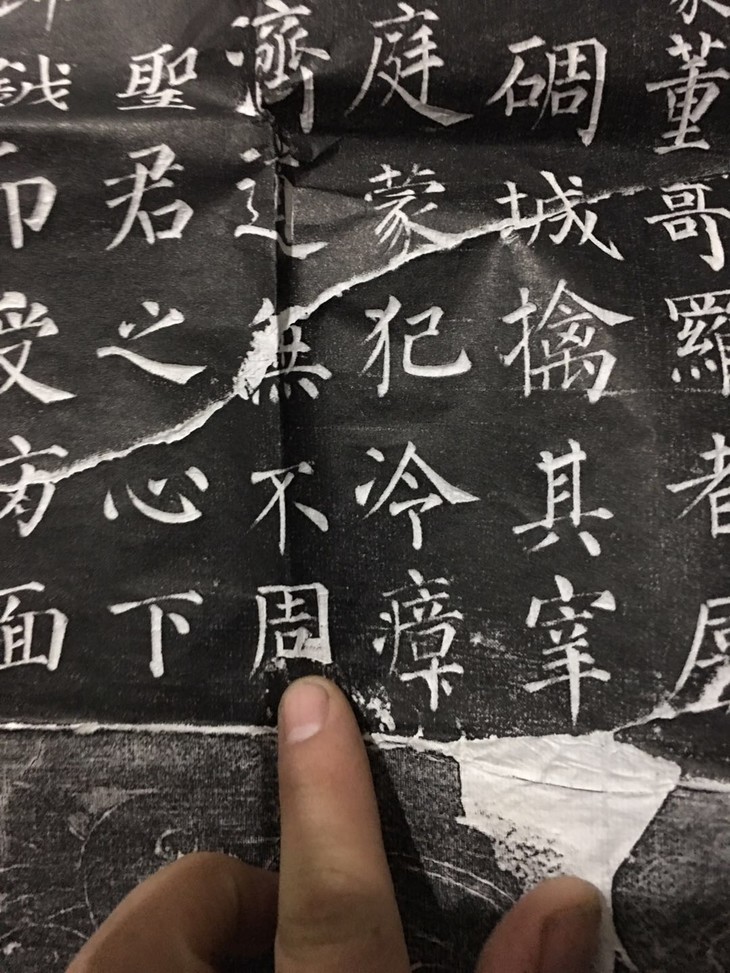 董哥羅者
碉城擒其宰
庭蒙犯冷瘴
濟無不周
聖君之心下
鉞印受方面